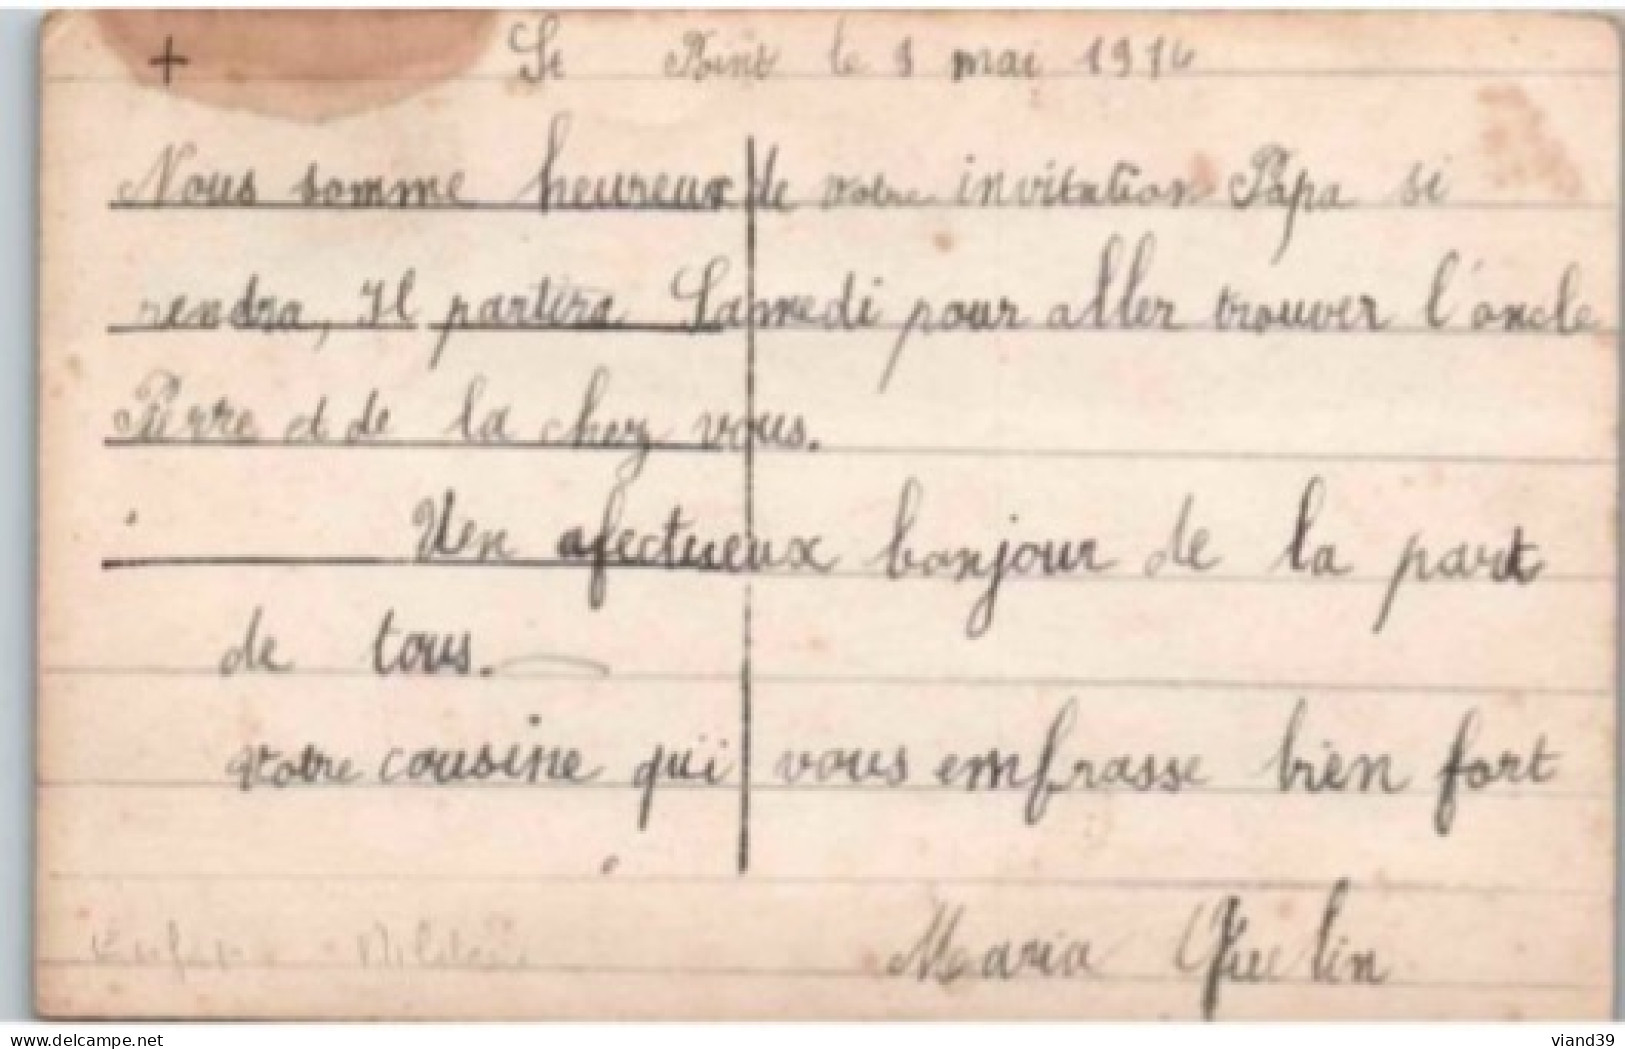 + St Point le 1 mai 1916
Nous somme heureux de votre invitation Papa si
rendra, Il partira Samedi pour aller trouver l'oncle
Pierre et de la chez vous.
Uen afectueux bonjour de la part
de tous.
Votre cousine qui vous embrasse bien fort
Maria
Militaire
www.delcampe.net viand39